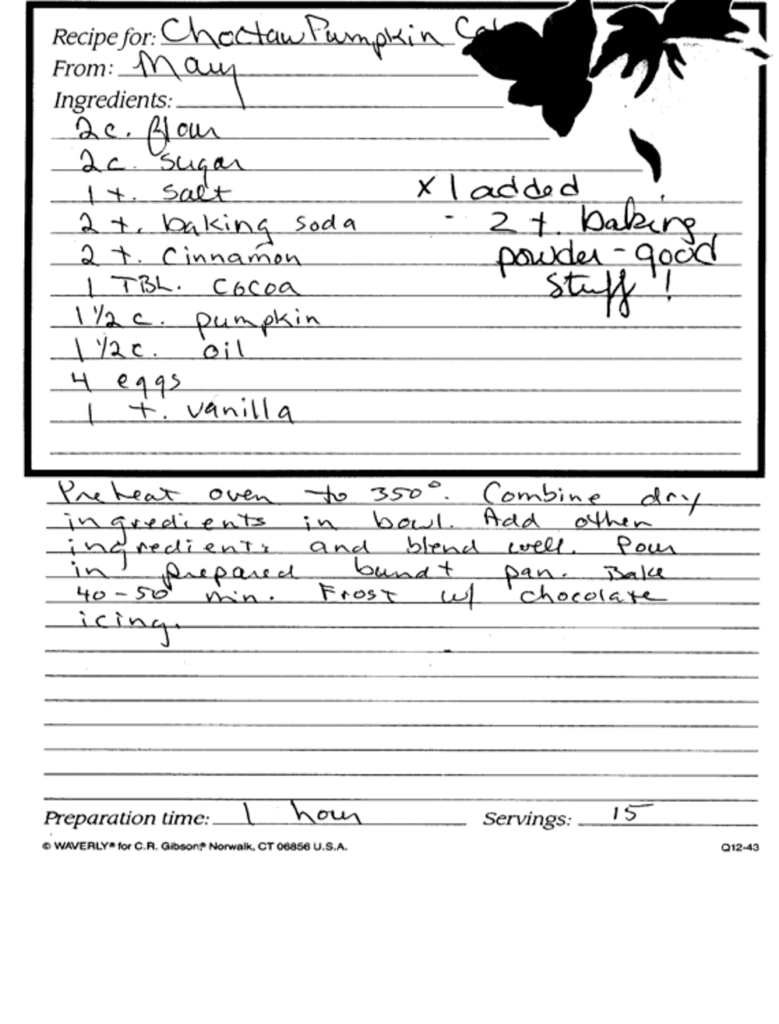 Recipe for: Choctaw Pumpkin
From: May
Ingredients:
2 c. flour
2 c. sugar
1 t. salt
x 1 added
2 t. baking soda
- 2 t. baking
2 t. cinnamon
powder - good
1 TBL. cocoa
stuff!
1 1/2 c. pumpkin
1 1/2 c. oil
4 eggs
1 t. vanilla
Preheat oven to 350°. Combine dry
ingredients in bowl. Add other
ingredients and blend well. Pour
in prepared bundt pan. Bake
40-50 min. Frost w/ chocolate
icing.
Preparation time: 1 hour Servings: 15
© WAVERLY® for C.R. Gibson,® Norwalk, CT 06856 U.S.A. Q12-43